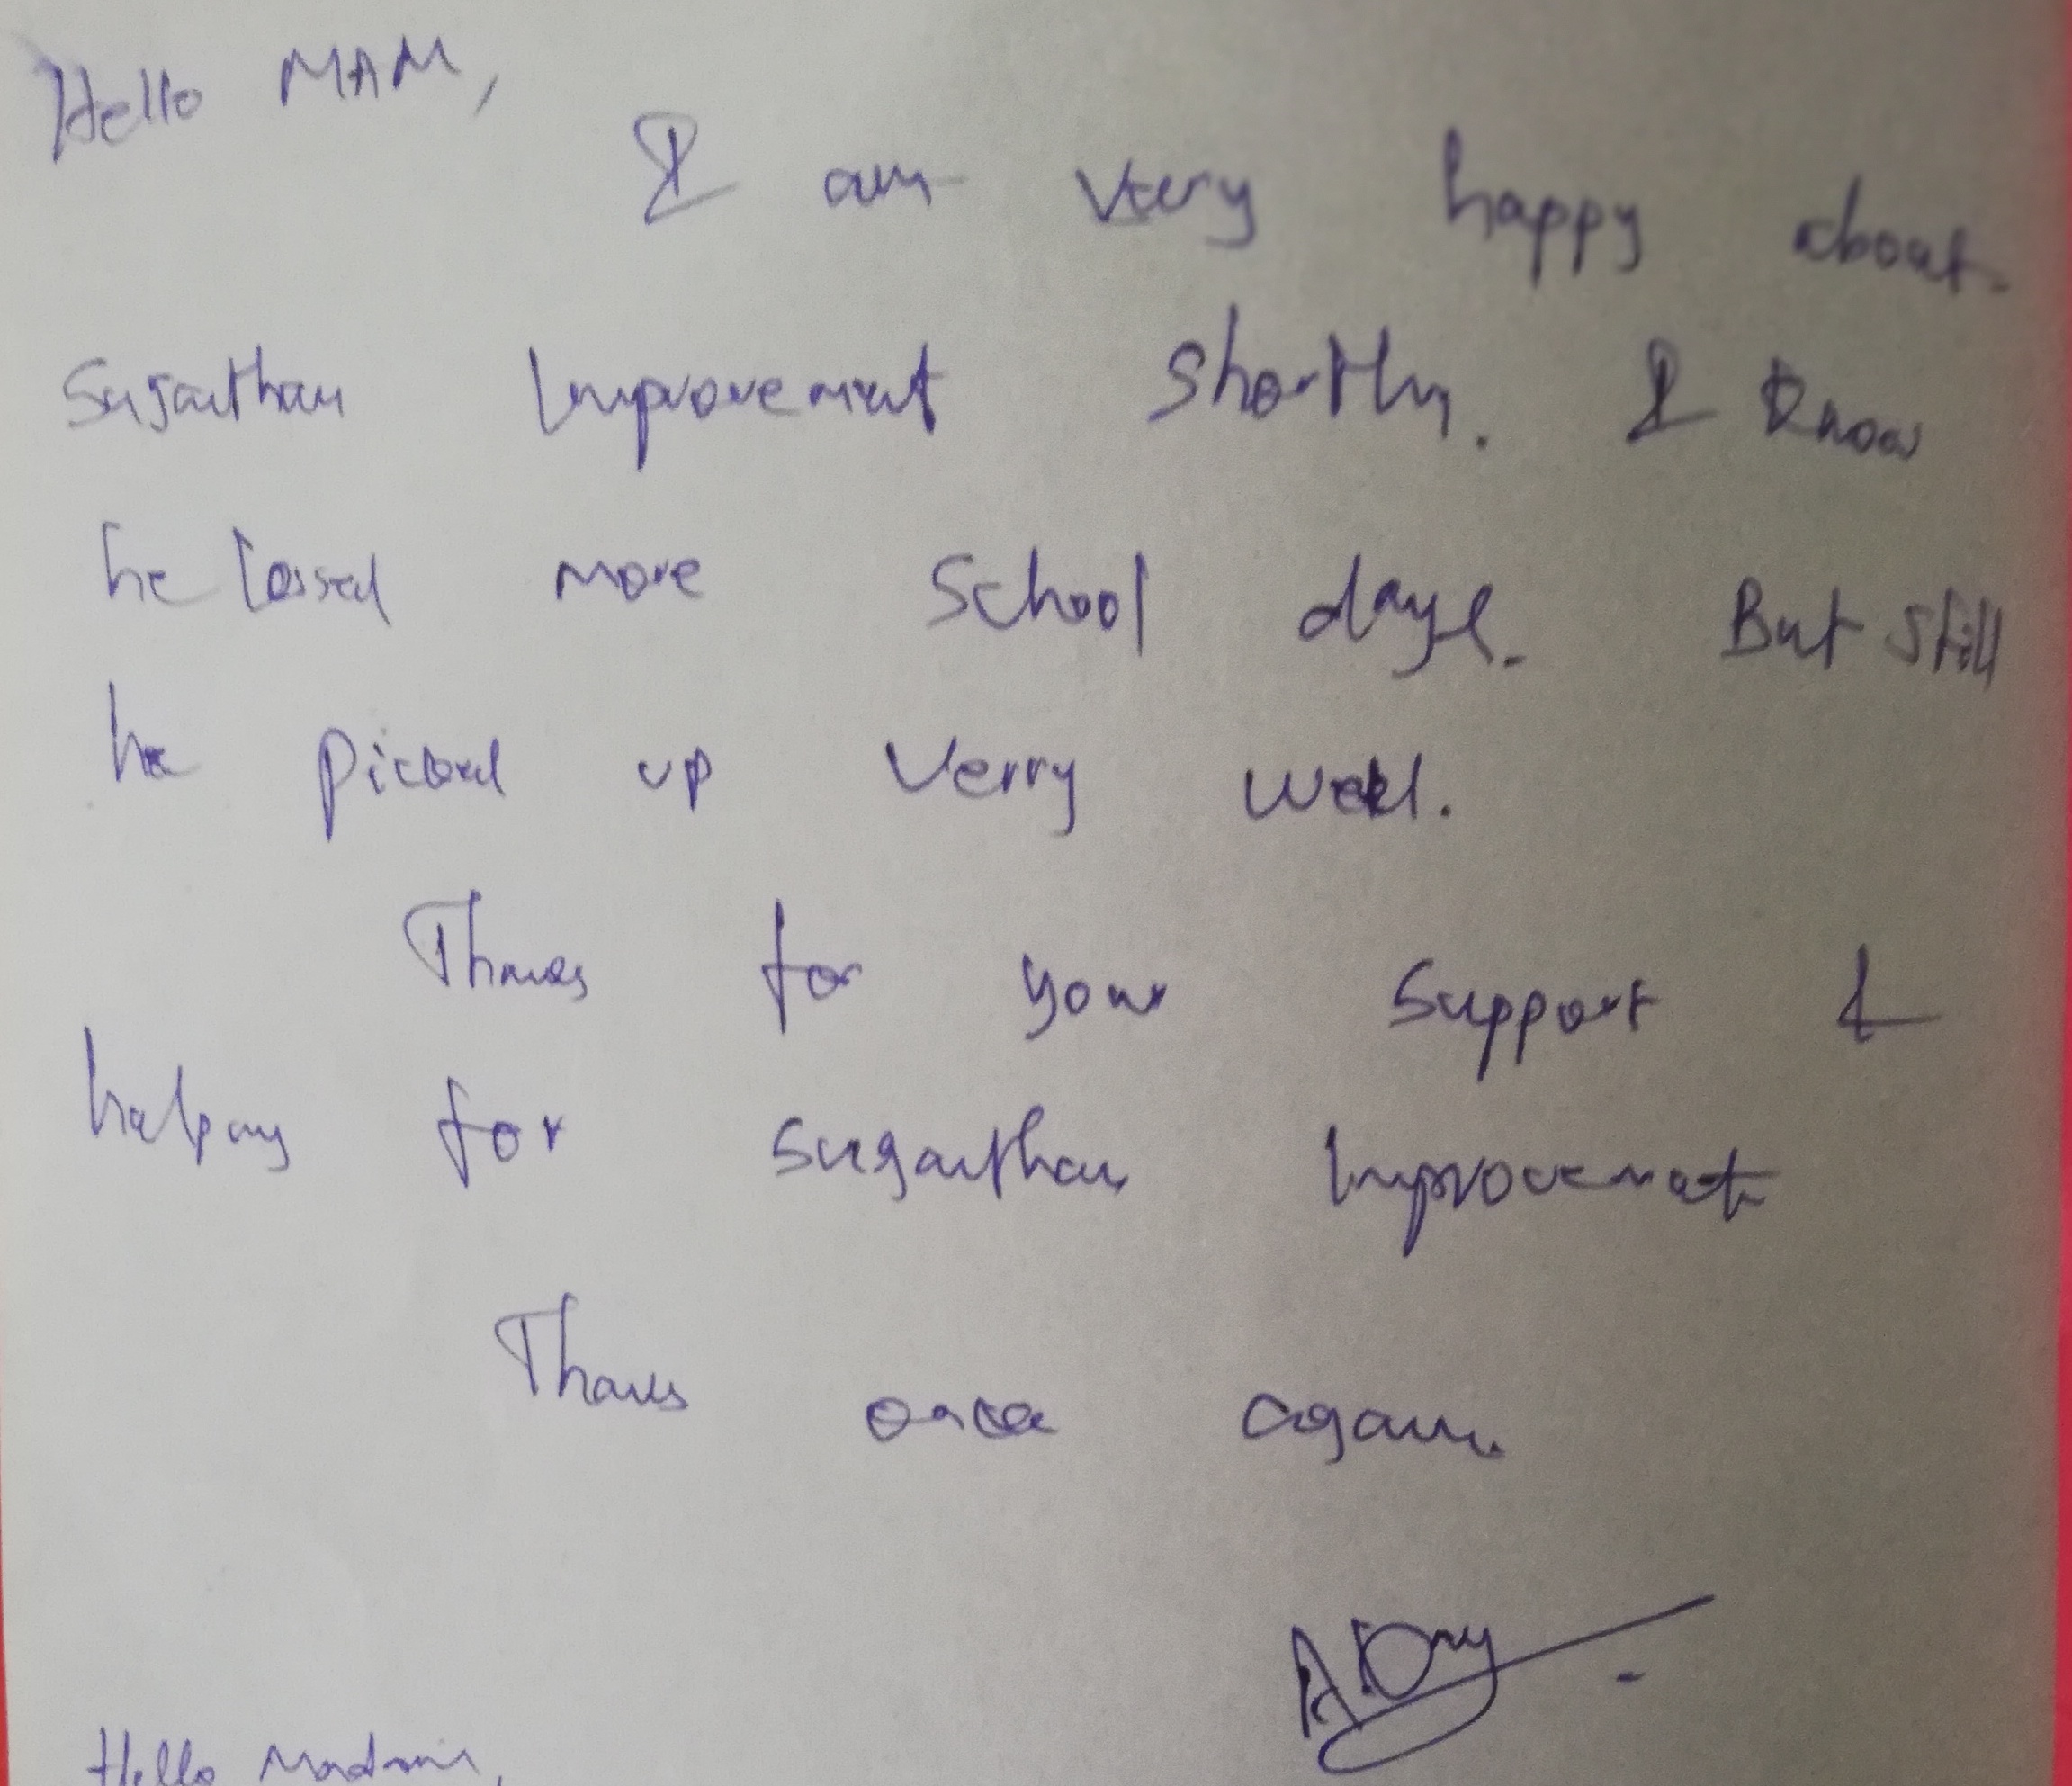 Hello MAM,
I am very happy about.
Sujanthan Improvement Shortly. I know
he lossed more School days. But still
he picked up Verry well.
Thanks for your Support &
helping for Suganthan Improvement
Thanks once again.
Hello Madam,